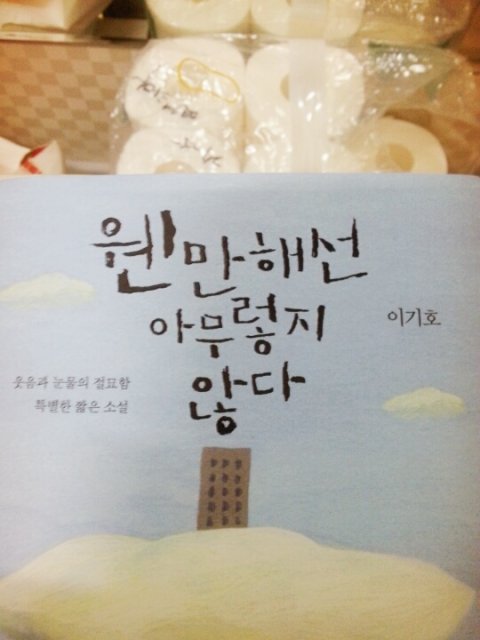 웬만해선
아무렇지
않다
이기호
웃음과 눈물의 절묘함
특별한 짧은 소설